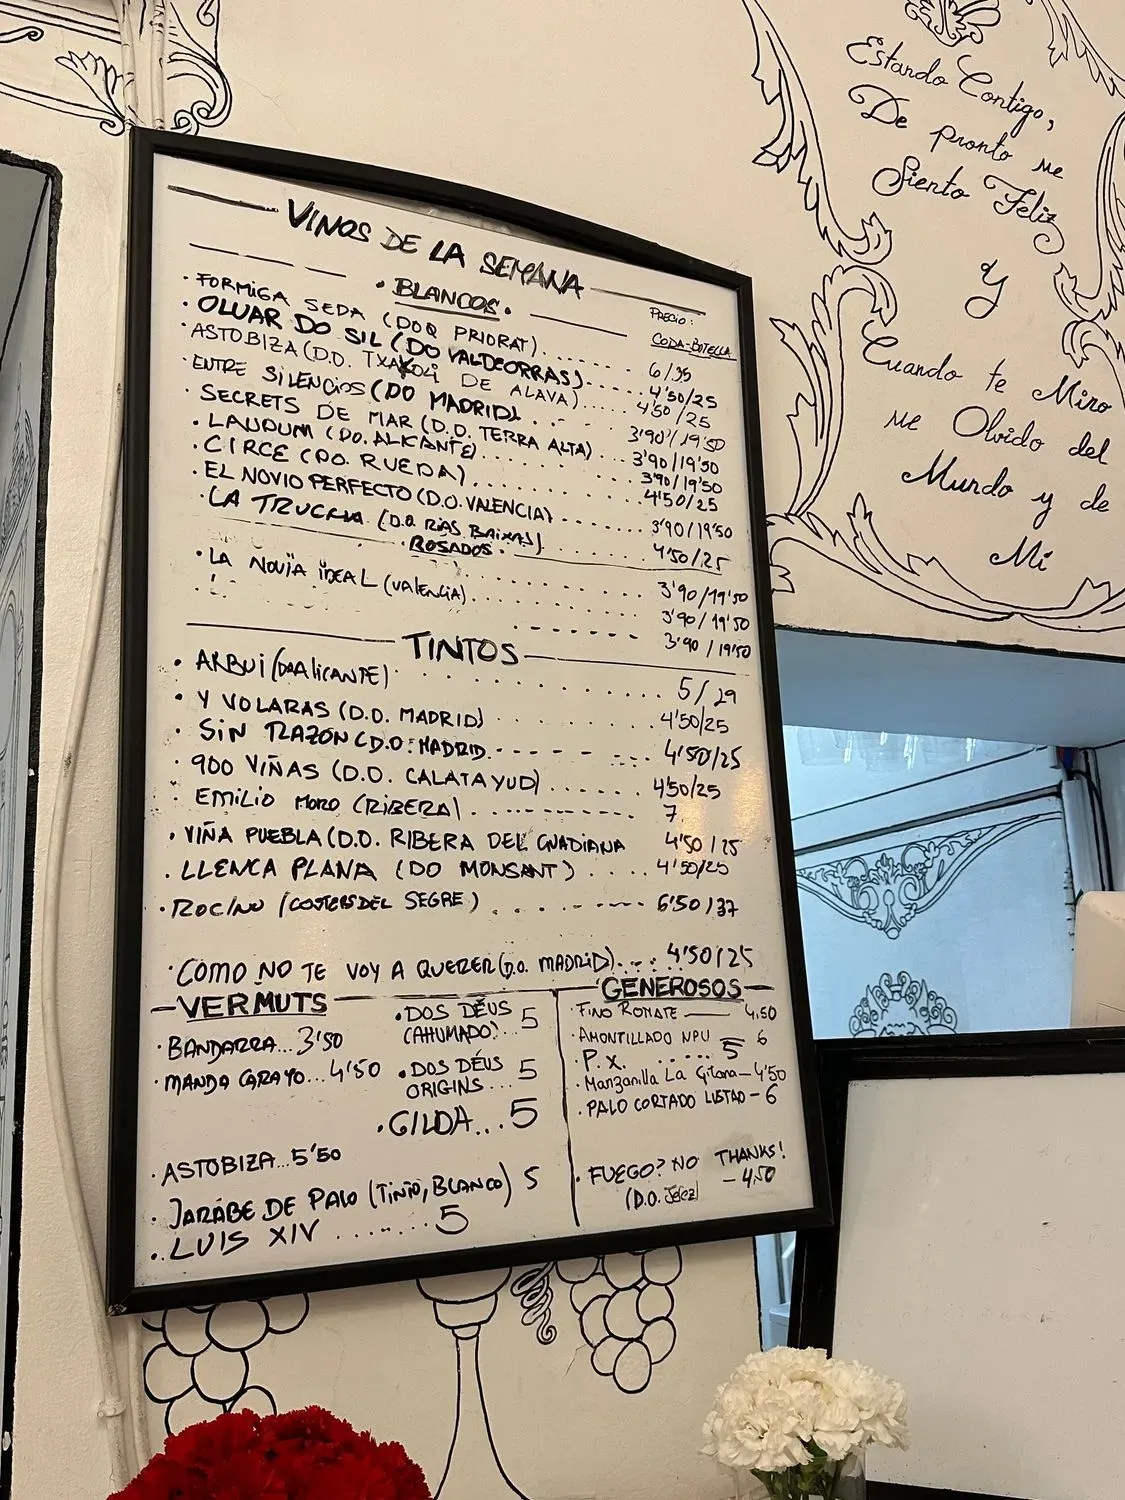 Estando Contigo,
De pronto me
Siento Feliz
y
Cuando te Miro
me Olvido del
Mundo y de
Mi
VINOS DE LA SEMANA
· BLANCOS ·
PRECIO:
COPA-BOTELLA
· FORMIGA SEDA (DOQ PRIORAT). ...... 6/35
· OLUAR DO SIL (DO VALDEORRAS)..... 4'50/25
· ASTOBIZA (D.O. TXAKOLI DE ALAVA)..... 4'50/25
· ENTRE SILENCIOS (DO MADRID) . - . - 3'90/19'50
· SECRETS DE MAR (D.O. TERRA ALTA) ... 3'90/19'50
· LAUDUM (DO. ALICANTE)......... 3'90/19'50
· CIRCE (DO. RUEDA)........... 4'50/25
· EL NOVIO PERFECTO (D.O. VALENCIA)....... 3'90/19'50
· LA TRUCHA (D.O. RIAS BAIXAS)....... 4'50/25
· ROSADOS ·
· · · · · · · · 3'90/19'50
· LA NOVIA IDEAL (VALENCIA)........ 3'90/19'50
· · · · · · · · 3'90/19'50
TINTOS
· ARBUI (DO ALICANTE) ............ 5/29
· Y VOLARAS (D.O. MADRID) ......... 4'50/25
· SIN RAZÓN (D.O. MADRID. - - - - - 4'50/25
· 900 VIÑAS (D.O. CALATAYUD)....... 4'50/25
· EMILIO MORO (RIBERA). - - - - - - 7
· VIÑA PUEBLA (D.O. RIBERA DEL GUADIANA 4'50/25
· LLENCA PLANA (DO MONSANT) ..... 4'50/25
· ROCINO (COSTERS DEL SEGRE) . . . - - - - 6'50/37
· COMO NO TE VOY A QUERER (D.O. MADRID)... 4'50/25
VERMUTS
· BANDARRA... 3'50
· MANDA CARAYO... 4'50
· DOS DÉUS
(AHUMADO)... 5
· DOS DÉUS
ORIGINS.... 5
· GILDA... 5
· ASTOBIZA... 5'50
· JARABE DE PALO (TINTO, BLANCO) 5
· LUIS XIV ........ 5
GENEROSOS
· FINO ROMATE —— 4,50
· AMONTILLADO NPU = 6
· P.X. ...... 5
· Manzanilla La Gitana — 4'50
· PALO CORTADO LUSTAO - 6
· FUEGO? NO THANKS!
(D.O. Jerez) - 4,50